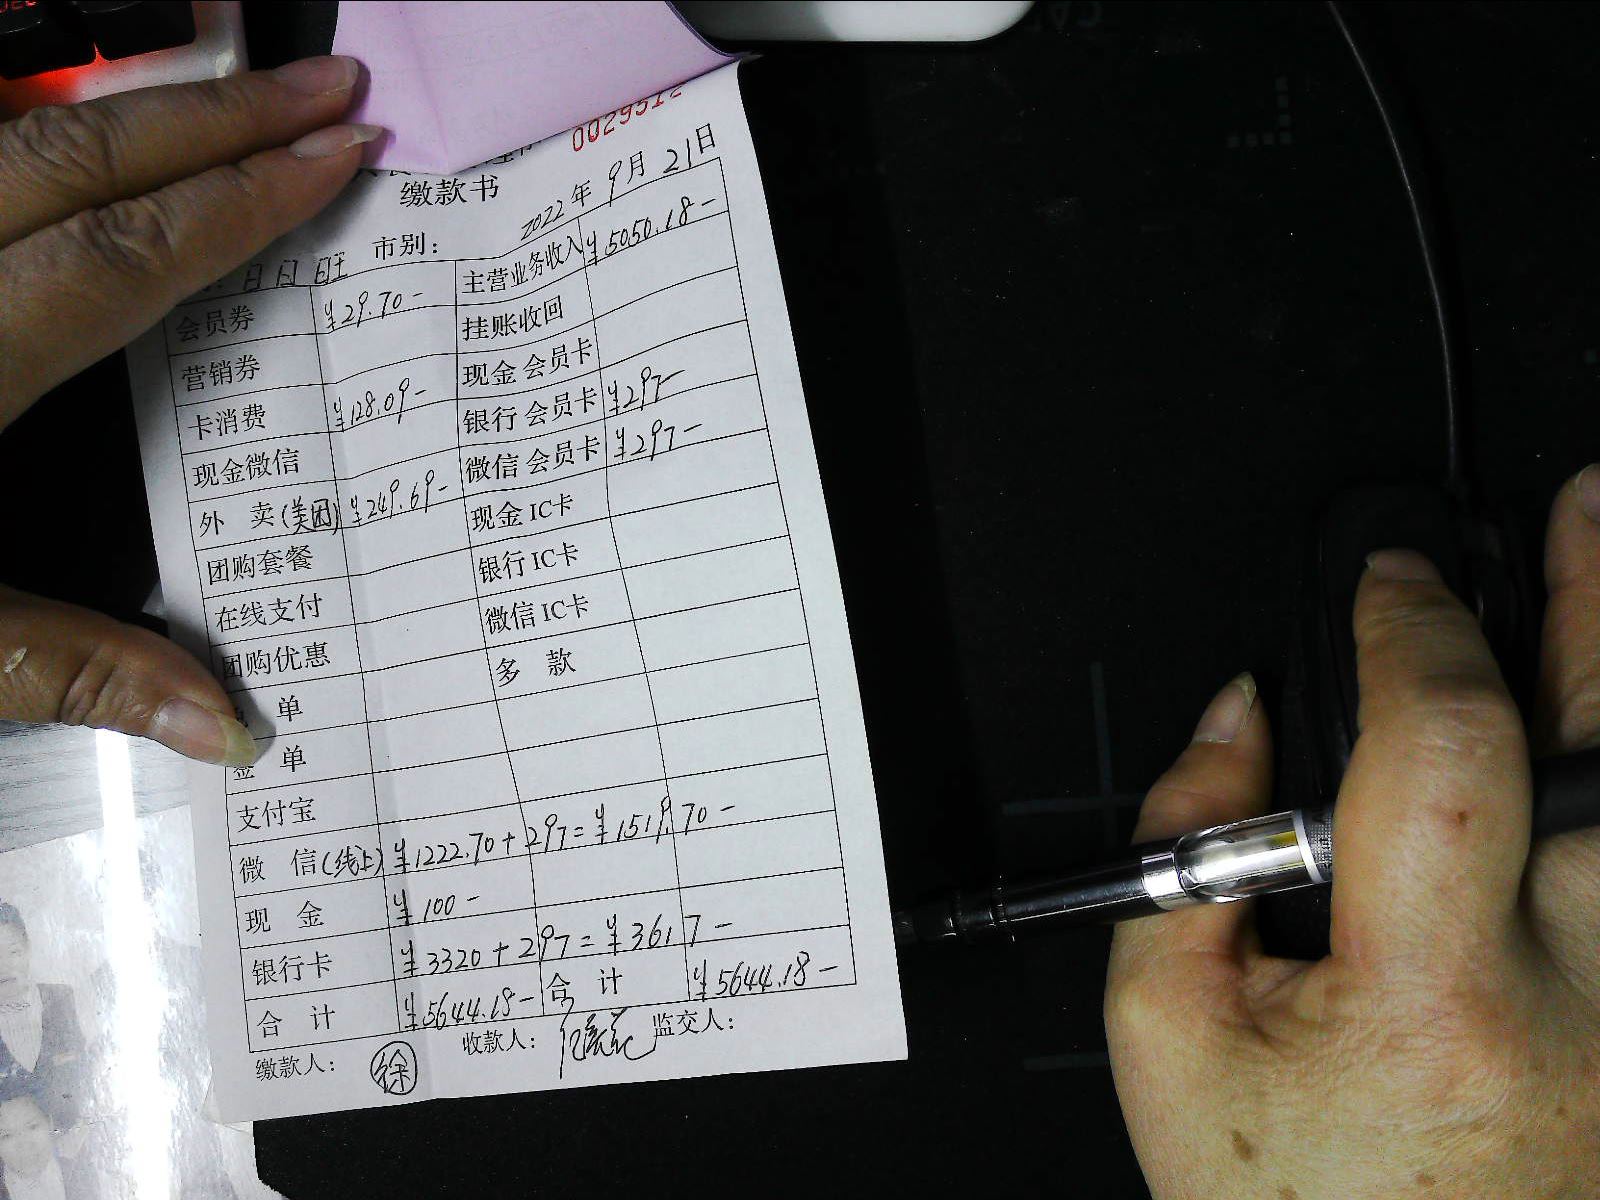 0029512
缴款书
2022年9月21日
市别：
日日班
会员券 ¥29.70- 主营业务收入 ¥5050.18-
营销券 挂账收回
卡消费 ¥128.09- 现金会员卡
现金微信 银行会员卡 ¥297-
外卖(美团) ¥249.69- 微信会员卡 ¥297-
团购套餐 现金IC卡
在线支付 银行IC卡
团购优惠 微信IC卡
单 多款
签单
支付宝
微信(线上) ¥1222.70+297=¥1519.70-
现金 ¥100-
银行卡 ¥3320+297=¥3617-
合计 ¥5644.18- 合计 ¥5644.18-
缴款人： 徐 收款人： 监交人：